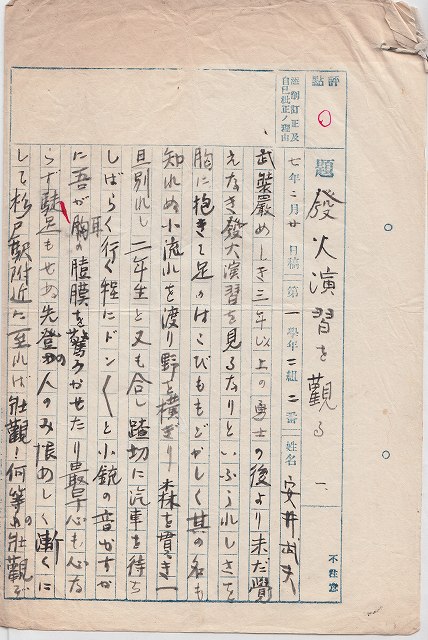 評點
添削訂正及
自己訂正ノ理由
題 發火演習を觀る 一、
七年二月廿日稿 第一學年三組二番 姓名 安井武夫
不注意
武裝嚴めしき三年以上の勇士の後より未だ覺
えなき發火演習を見るなりといふうれしさを
胸に抱きて足のはこびももどかしく其の名も
知れぬ小流れを渡り野を橫ぎり森を貫き一
旦別れし二年生と又も合し踏切に汽車を待ち
しばらく行く程にドン〱と小銃の音かすか
に吾が胸耳の膜を驚かせたり最早心も心な
らず駄足もせぬ先登の人のみ恨めしく漸くに
して松戸驛附近に至れば壯觀!何等の壯觀ぞ